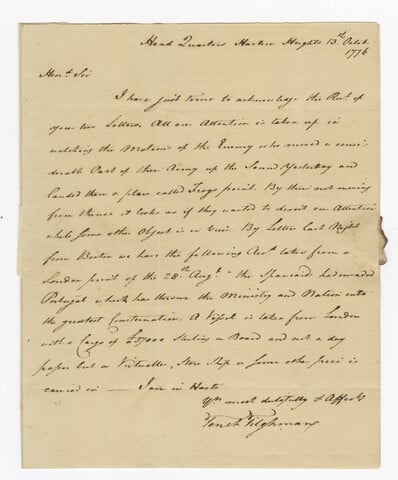 Head Quarters Harlem Heights 13th Octob.
1776
Hond. Sir
I have just time to acknowledge the Rect. of
your two Letters. All our Attention is taken up in
watching the Motions of the Enemy who moved a consi-
derable Part of their Army up the Sound Yesterday and
landed them a place called Frogs point. By their not moving
from thence it looks as if they wanted to divert our Attention
while some other Object is in View. By Letter last Night
from Boston we have the following Acct. taken from a
London print of the 28th Augt. "the Spaniards had invaded
Portugal which has thrown the Ministry and Nation into
the greatest Consternation. A Vessel is taken from London
with a Cargo of £37000 Sterling on Board and not a day
passes but a Victualler, Store Ship or some other prize is
carried in — I am in Haste
Yr. most dutifully & Affect.
Tench Tilghman